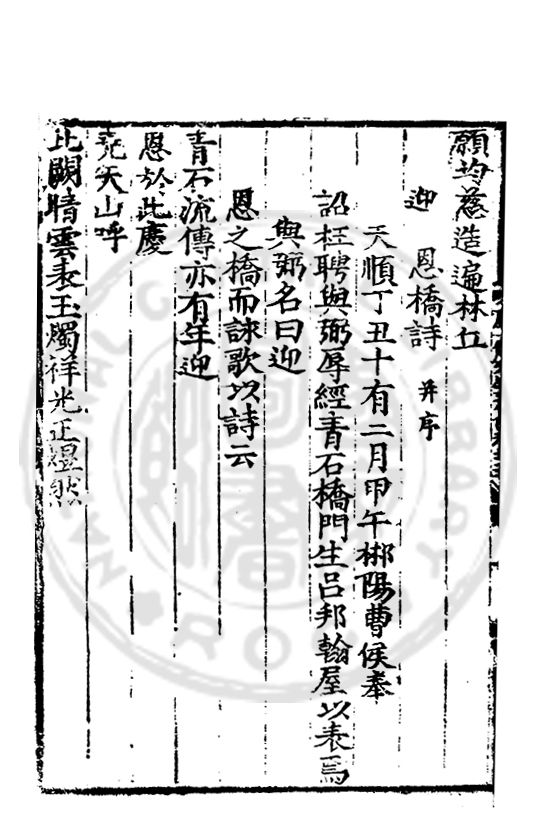 願均慈造遍林丘
迎 恩橋詩 并序
天順丁丑十有二月甲午郴陽曹侯奉
詔枉聘與弼辱經青石橋門生呂邦翰屋以表焉
與弼名曰迎
恩之橋而詠歌以詩云
青石流傳亦有年迎
恩於此慶
堯天山呼
北闕晴雲表玉燭祥光正煜然